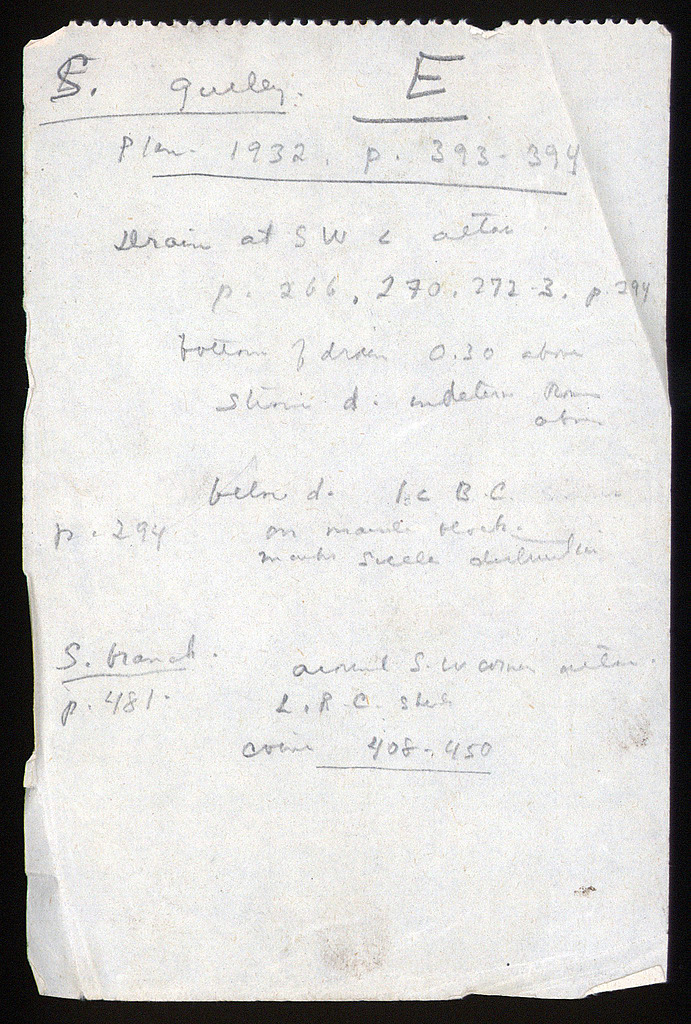 S. gulley. E
Plan. 1932. p. 393-394
Drain at SW c altar.
p. 266, 270, 272-3. p. 294
bottom of drain 0.30 above
d. Rom
above
below d. 1. c B.C.
p. 294 on marble block.
marks
S. branch. around S.W corner altar.
p. 481. L. R. C. sherds
coins 408-450